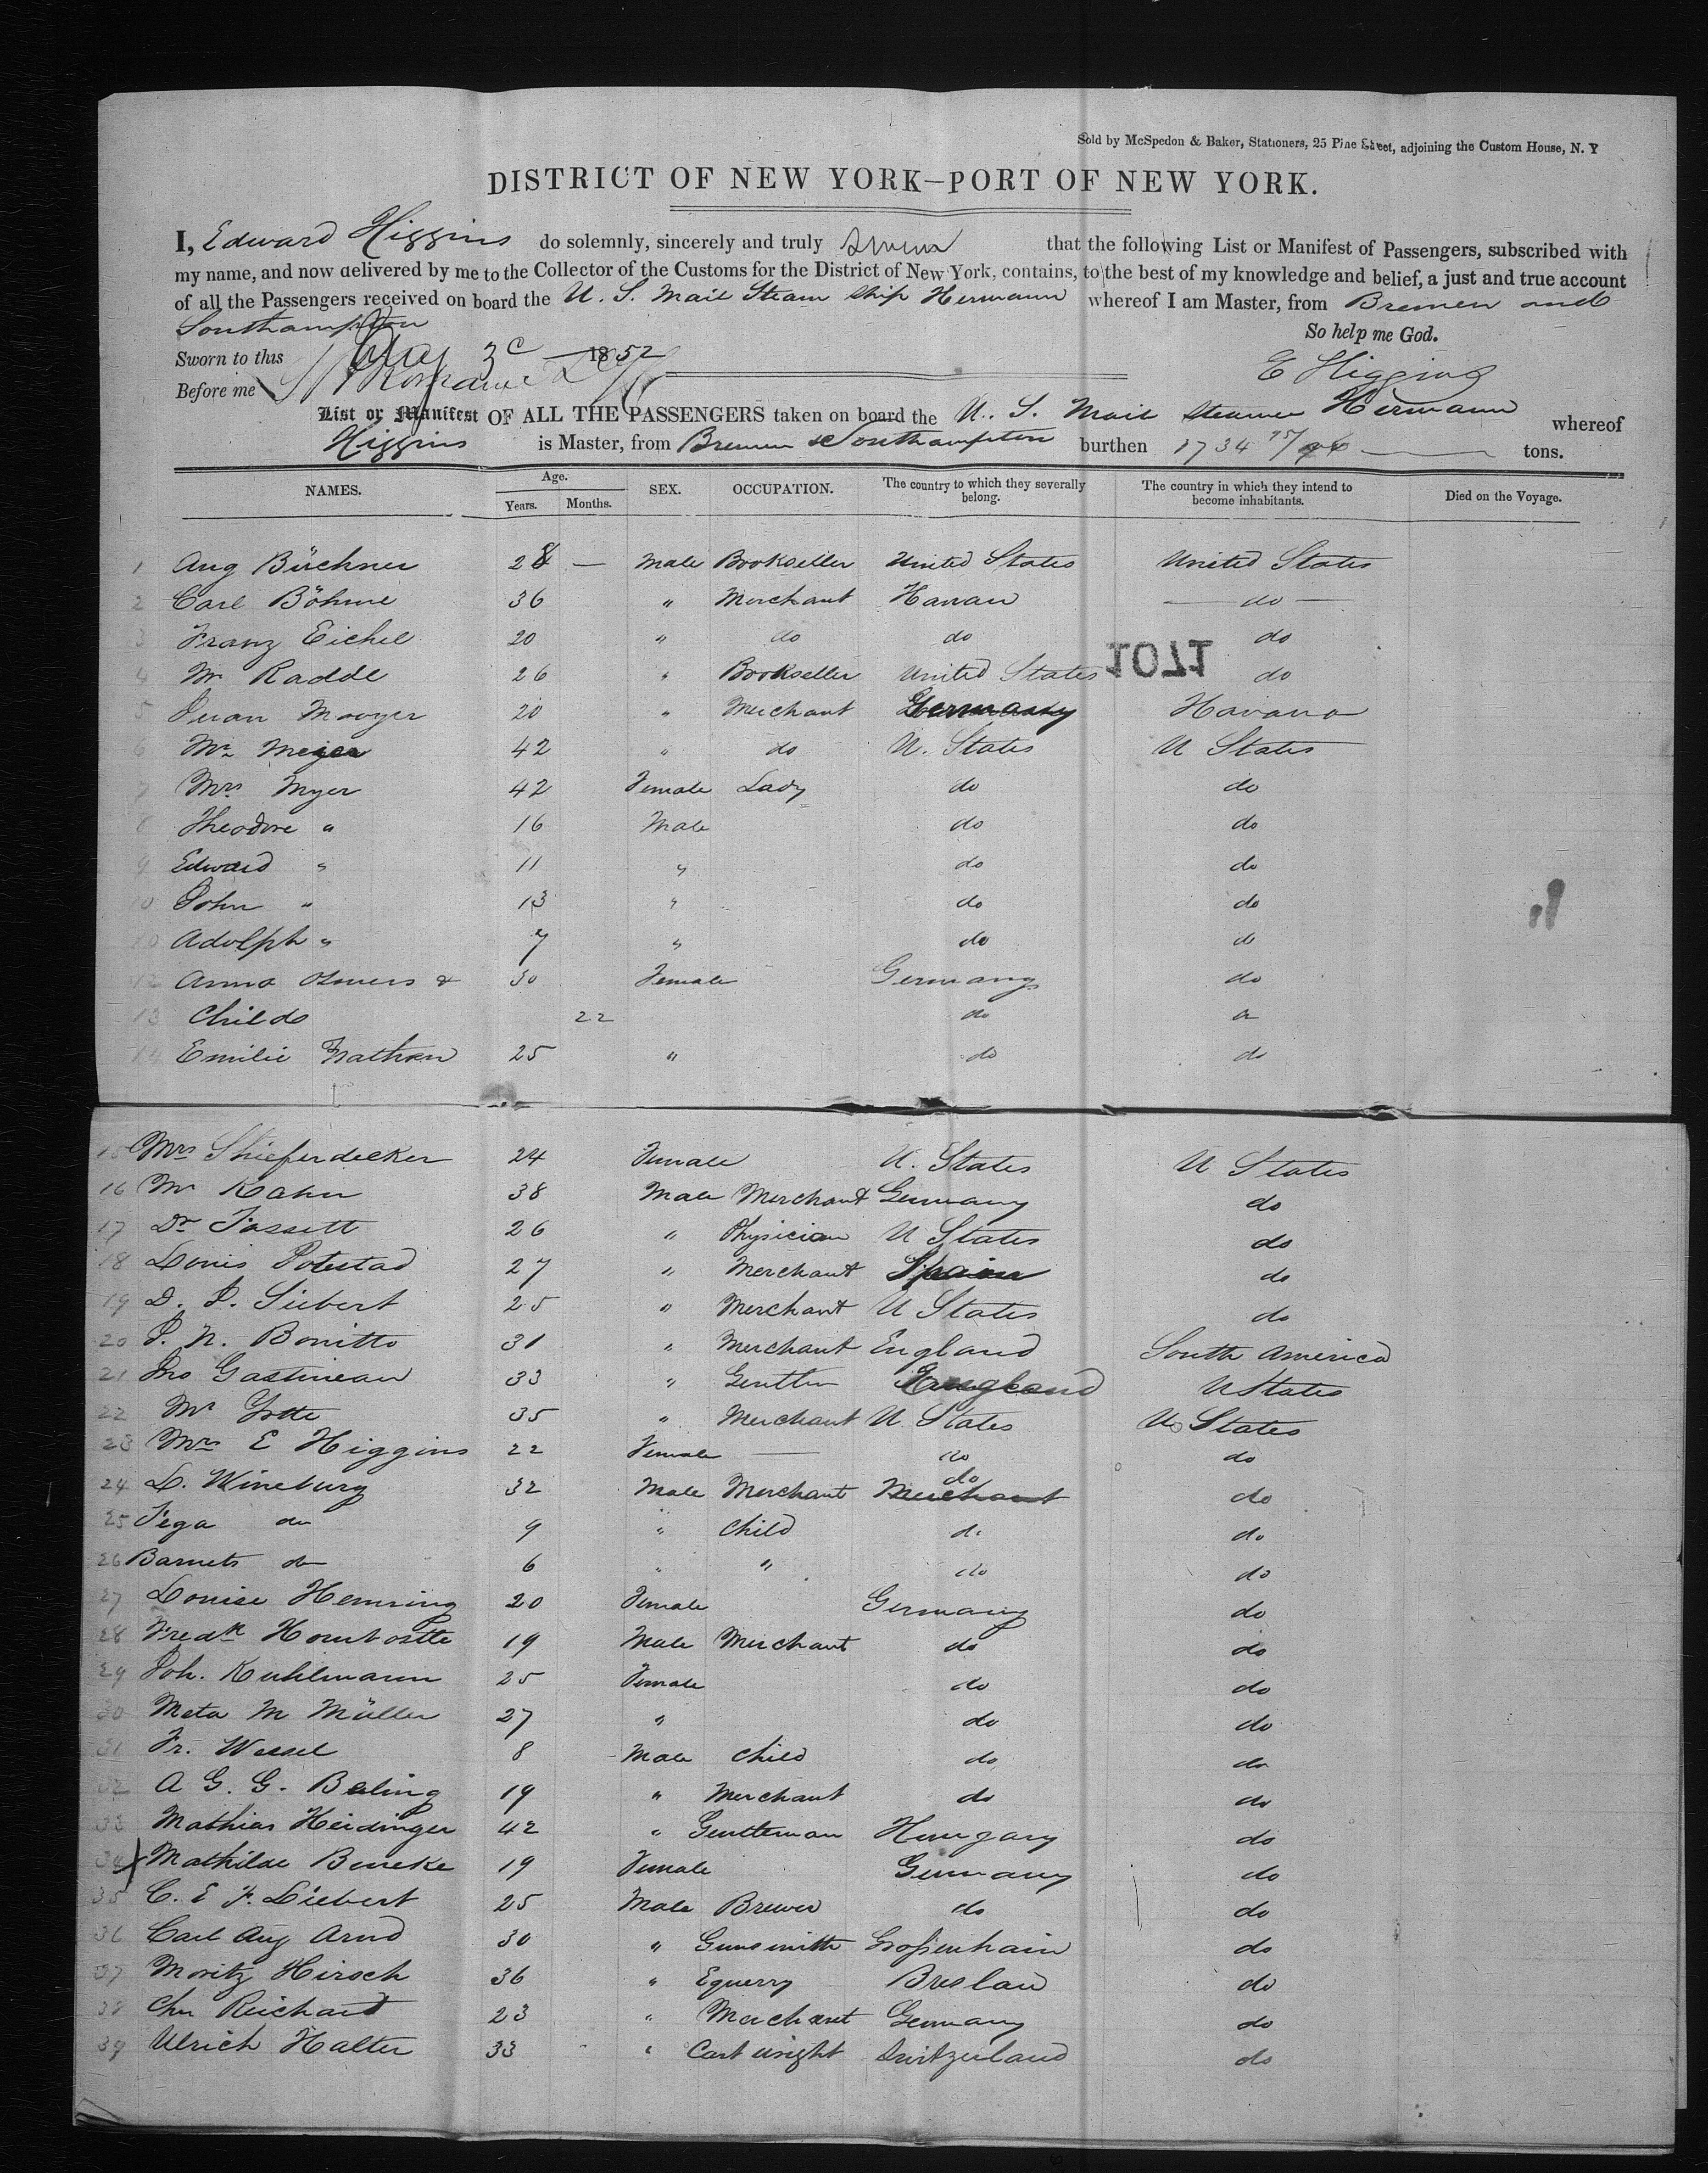 Sold by McSpedon & Baker, Stationers, 25 Pine Street, adjoining the Custom House, N. Y
DISTRICT OF NEW YORK—PORT OF NEW YORK.
I, Edward Higgins do solemnly, sincerely and truly swear that the following List or Manifest of Passengers, subscribed with
my name, and now delivered by me to the Collector of the Customs for the District of New York, contains, to the best of my knowledge and belief, a just and true account
of all the Passengers received on board the U. S. Mail Steam Ship Hermann whereof I am Master, from Bremen and
Southampton
So help me God.
Sworn to this May 3 1852
E Higgins
Before me
List or Manifest OF ALL THE PASSENGERS taken on board the U. S. Mail Steamer Hermann whereof
Higgins is Master, from Bremen & Southampton burthen 1734 95/ tons.
NAMES. Age. Years. Months. SEX. OCCUPATION. The country to which they severally belong. The country in which they intend to become inhabitants. Died on the Voyage.
1 Aug Büchner 28 — Male Bookseller United States United States
2 Carl Böhme 36 " Merchant Hanau — do —
3 Franz Eichel 20 " do do do
1071
4 Mr Radde 26 " Bookseller United States do
5 Juan Mooyer 20 " Merchant Germany Havana
6 Mr Meyer 42 " do U. States U States
7 Mrs Myer 42 Female Lady do do
8 Theodore " 16 Male do do
9 Edward " 11 " do do
10 John " 13 " do do
10 Adolph " 7 " do d
12 Anna & 30 Female Germany do
13 Childs 22 do
14 Emilie Nathan 25 " do do
15 Mrs Shieferdecker 24 Female U. States U States
16 Mr Kahn 38 Male Merchant Germany do
17 Dr Fassett 26 " Physician U States do
18 Louis Potestad 27 " Merchant Spain do
19 D. P. Siebert 25 " Merchant U States do
20 J. N. Bonitto 31 " Merchant England South America
21 Jno Gastineau 33 " Gentlm England U States
22 Mr 35 " Merchant U States U States
23 Mrs E Higgins 22 Female — do do
24 L. Wineburg 32 Male Merchant Merchant do do
25 Fega do 9 " Child d. do
26 Barnets do 6 " " do do
27 Louise Hemsing 20 Female Germany do
28 Fredk Hornbostle 19 Male Merchant do do
29 Joh. Kuhlmann 25 Female do do
30 Meta M Müller 27 " do do
31 Fr. Wessel 8 Male Child do do
32 A G. G. Beling 19 " Merchant do do
33 Mathias Heidinger 42 " Gentleman Hungary do
34 Mathilde Beneke 19 Female Germany do
35 C. E F. Liebert 25 Male Brewer do do
36 Carl Aug Arnd 30 " Gunsmith Großenhain do
37 Moritz Hirsch 36 " Equerry Breslau do
38 Chr Reichard 23 " Merchant Germany do
39 Ulrich Halter 33 " Cartwright Switzerland do